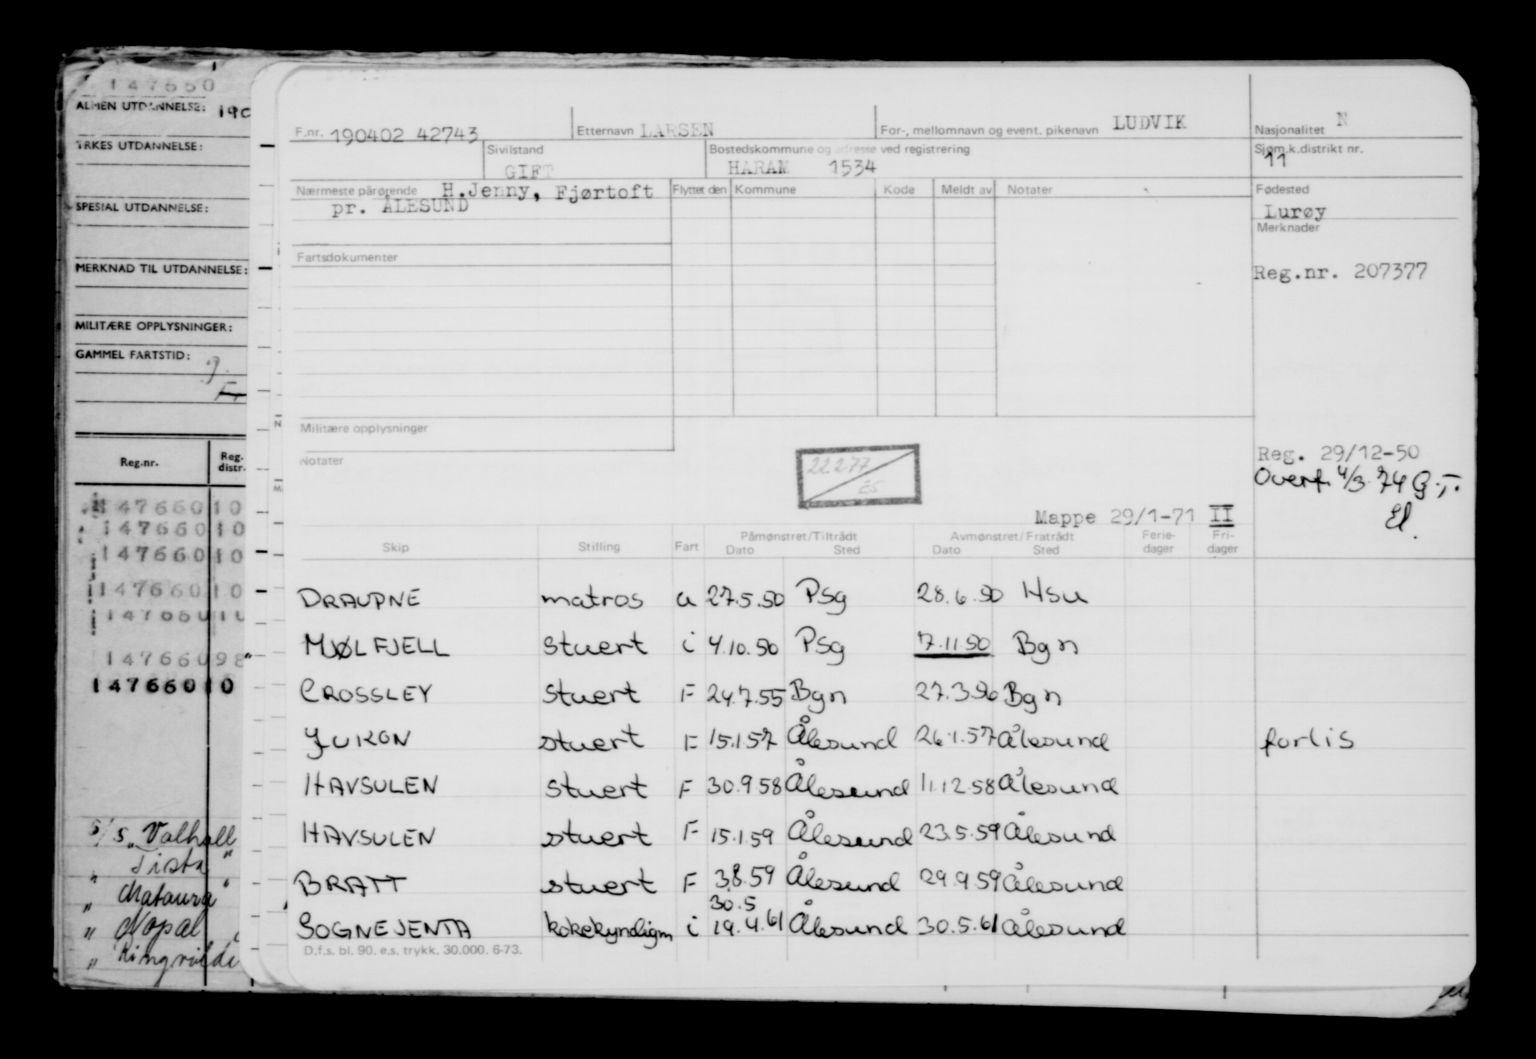 147660
ALMEN UTDANNELSE: 190
YRKES UTDANNELSE:
SPESIAL UTDANNELSE:
MERKNAD TIL UTDANNELSE:
MILITÆRE OPPLYSNINGER:
GAMMEL FARTSTID:
Reg.nr. Reg. distr.
147660 10
147660 10
147660 10
147660 10
147660 10
147660 98
147660 10
s/s „Valhall"
„ Tista"
„ Mataura"
„ Nopal
„ Ringulv
F.nr. 190402 42743 Etternavn LARSEN For-, mellomnavn og event. pikenavn LUDVIK Nasjonalitet N
Sivilstand GIFT Bostedskommune og adresse ved registrering HARAM 1534 Sjøm.k.distrikt nr. 11
Nærmeste pårørende H.Jenny, Fjørtoft Flyttet den Kommune Kode Meldt av Notater Fødested
pr. ÅLESUND Lurøy
Merknader
Fartsdokumenter
Reg.nr. 207377
Militære opplysninger
Notater
22277
Reg. 29/12-50
Overf. 4/3 74 G.T.
El.
Mappe 29/1-71 II
Skip Stilling Fart Påmønstret/Tiltrådt Dato Sted Avmønstret/Fratrådt Dato Sted Ferie-dager Fri-dager
DRAUPNE matros u 27.5.50 Psg 28.6.50 Hsu
MJØLFJELL stuert i 4.10.50 Psg 7.11.50 Bgn
CROSSLEY stuert F 24.7.55 Bgn 27.3.56 Bgn
YUKON stuert F 15.1.57 Ålesund 26.1.57 Ålesund forlis
HAVSULEN stuert F 30.9.58 Ålesund 11.12.58 Ålesund
HAVSULEN stuert F 15.1.59 Ålesund 23.5.59 Ålesund
BRATT stuert F 3.8.59 Ålesund 29.9.59 Ålesund
30.5
SOGNEJENTA kokekyndigm i 19.4.61 Ålesund 30.5.61 Ålesund
D.f.s. bl. 90. e.s. trykk. 30.000. 6-73.